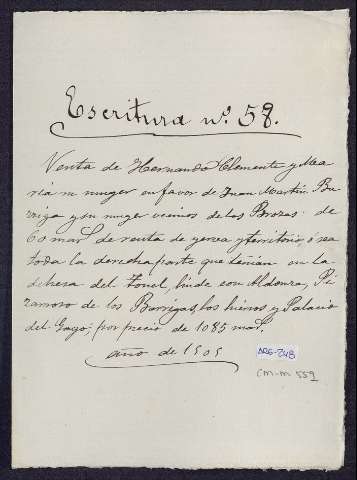 Escritura nº. 58.
Venta de Hernando Clemente y Ma-
ría su muger en favor de Juan Martin Bu-
rriga y su muger vecinos de las Brozas de
60 mar.s de renta de yerva y territorio, ó sea
toda la derecha parte que tenían en la
dehesa del Tonel, linde con Aldonza, Pi-
zarroso de los Barrigas, los hierros y Palacio
del Gago; por precio de 1085 mar.s
año de 1505
ARG-248
CM-M 559